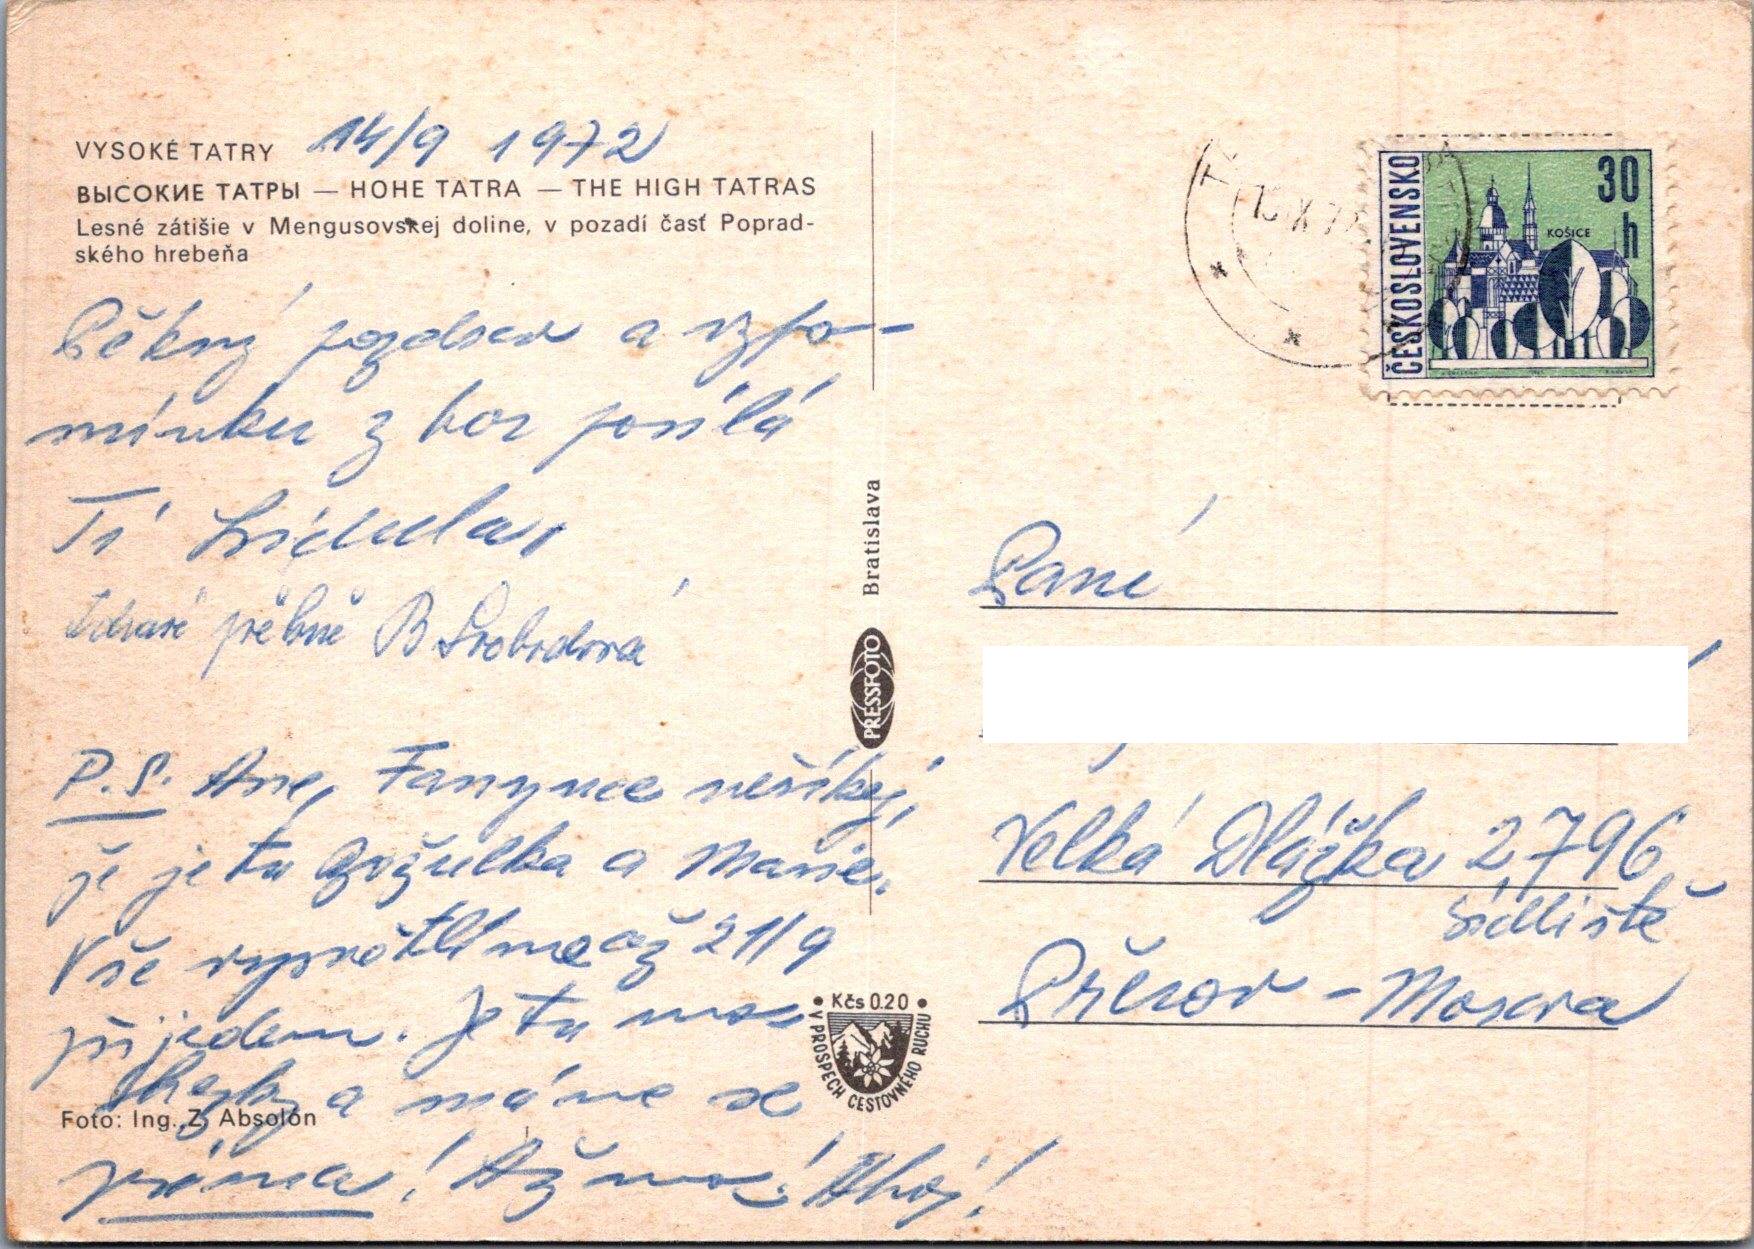 VYSOKÉ TATRY 14/9 1972
ВЫСОКИЕ ТАТРЫ — HOHE TATRA — THE HIGH TATRAS
Lesné zátišie v Mengusovskej doline, v pozadí časť Poprad-
ského hrebeňa
Pěkný pozdrav a vzpo-
mínku z hor posílá
Ti Lidula,
Zdraví pěkně B Svobodová
P.S. Ane, Fanynce neříkej,
že je tu a Marie.
Vše až 21/9
přijedem. Je tu moc
hezky a máme se
príma! Až moc! Ahoj!
Foto: Ing. Z. Absolón
Bratislava
PRESSFOTO
• Kčs 0.20 •
V PROSPECH CESTOVNÉHO RUCHU
ČESKOSLOVENSKO
30 h
KOŠICE
Paní
Velká Dlážka 2796
sídliště
Přerov - Morava